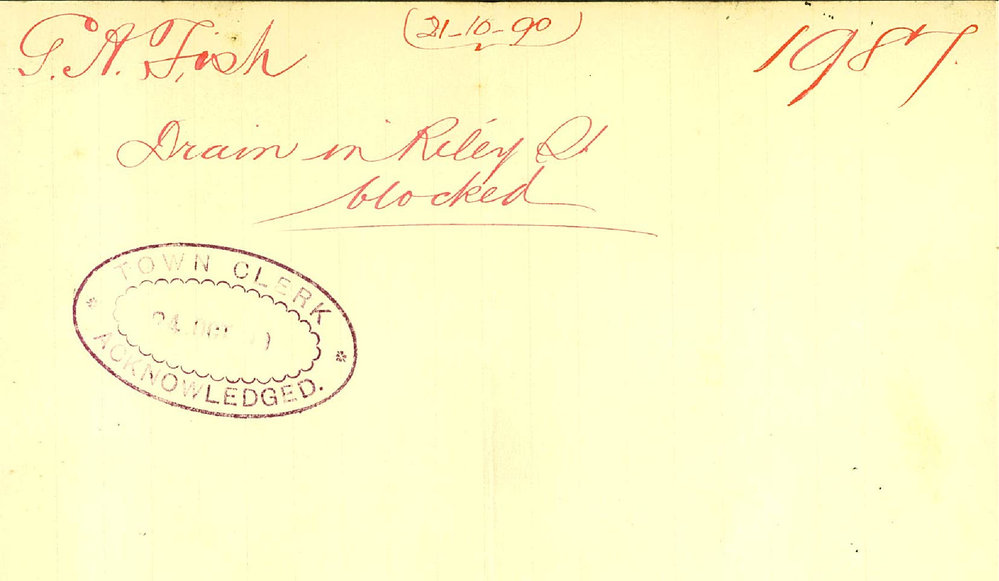 G. A. Fish
(21-10-90)
1987.
Drain in Riley St
blocked
TOWN CLERK
24 OCT
ACKNOWLEDGED.